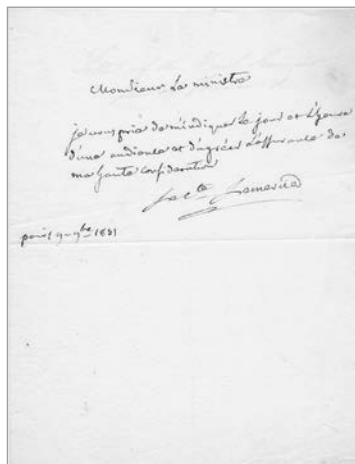 Monsieur Le ministre
je vous prie de m'indiquer le jour et l'heure
d'une audience et d'agréer l'assurance de
ma haute consideration
paris 9bre 1831